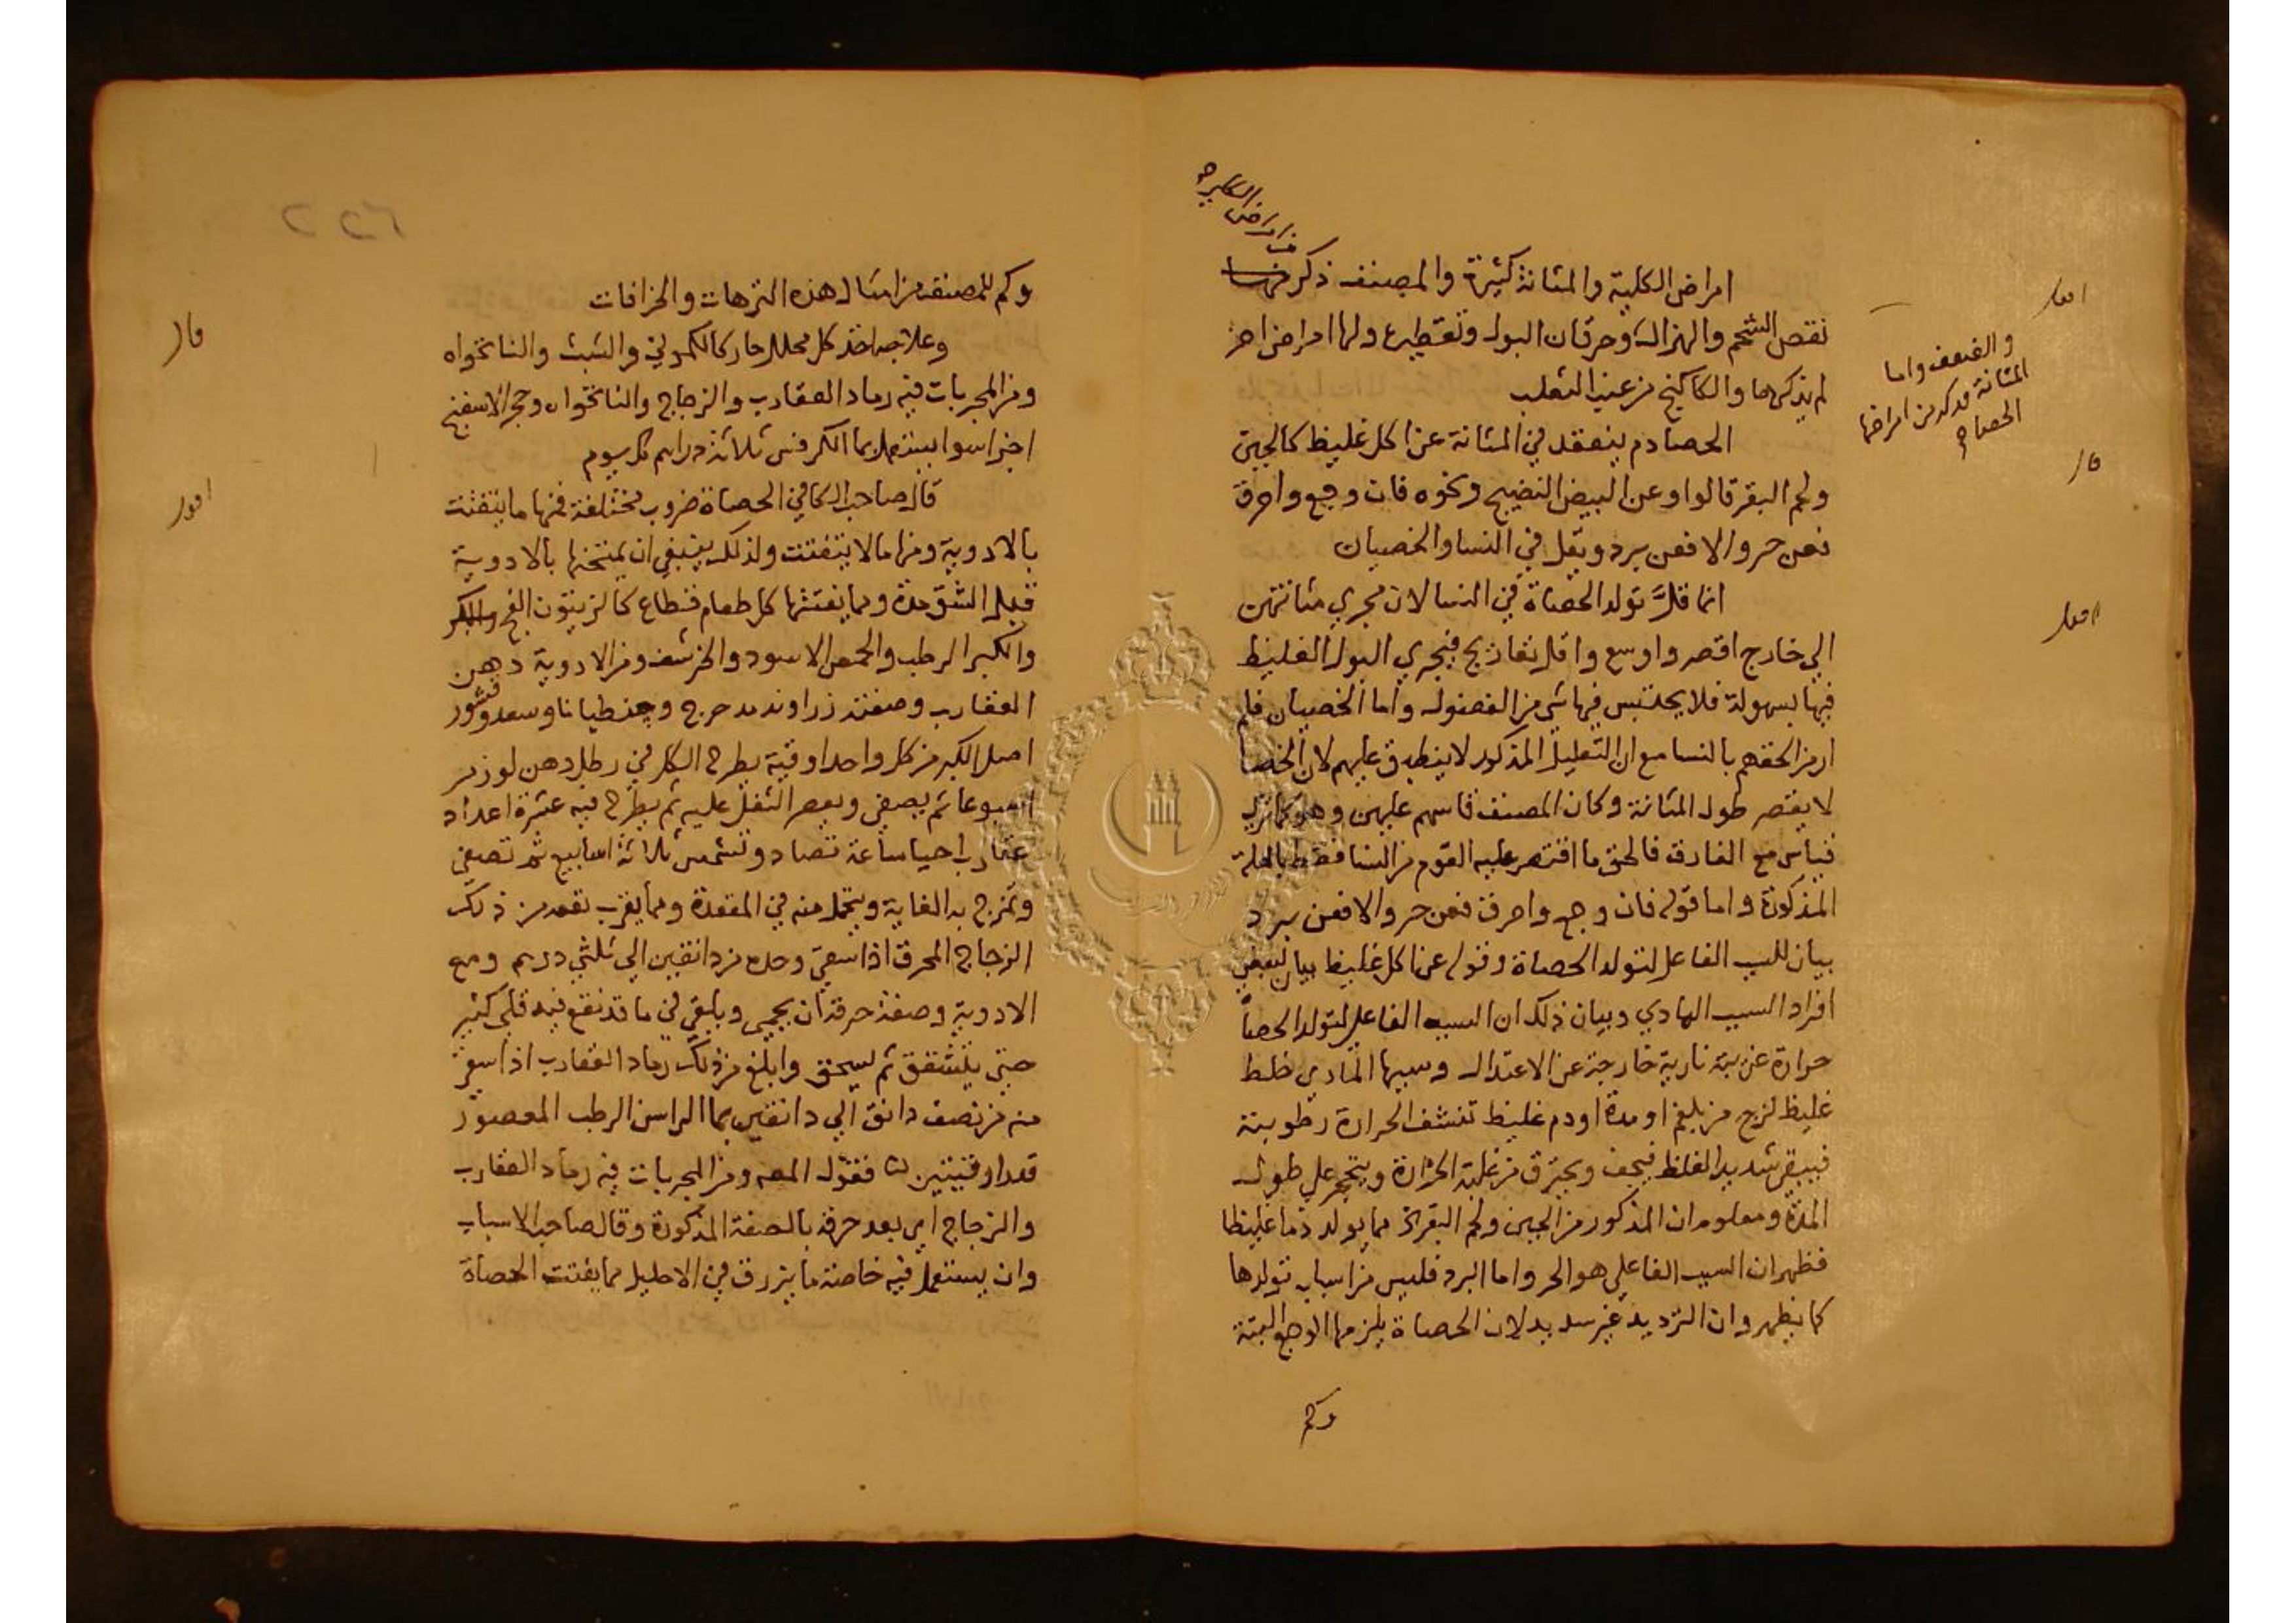 من امراض الكلية
امراض الكلية والمثانة كثيرة والمصنف ذكر منها
نقص الشحم والهزال وحرقان البول وتقطيع ولها امراض اخر
لم يذكرها والكاكنج من عنب الثعلب
الحصا دم ينعقد في المثانة عن اكل غليظ كالجبن
ولحم البقر قالوا وعن البيض النضيج ونحوه فان وجع واحرق
فعن حر والا فعن برد ويقل في النسا والخصيان
انما قل تولد الحصاة في النسا لان مجري مثانتهن
الي خارج اقصر واوسع واقل تعاريج فيجري البول الغليظ
فيها بسهولة فلا يحتبس فيها شي من الفضول واما الخصيان فلم
ار من الحقهم بالنسا مع ان التعليل المذكور لا ينطبق عليهم لان الخصا
لا يقصر طول المثانة وكان المصنف قاسهم عليهن وهو كما تري
قياس مع الفارق فالحق ما اقتصر عليه القوم من النسا فقط بالعلة
المذكورة واما قوله فان وجع واحرق فعن حر والا فعن برد
بيان للسبب الفاعل لتولد الحصاة وقوله عن اكل غليظ بيان لبعض
افراد السبب المادي وبيان ذلك ان السبب الفاعل لتولد الحصاة
حرارة غريبة نارية خارجة عن الاعتدال وسببها المادي خلط
غليظ لزج من بلغم او مدة او دم غليظ تنشف الحرارة رطوبته
فيبقي شديد الغلظ فيجف ويحترق من غلبة الحرارة ويتحجر علي طول
المدة ومعلوم ان المذكور من الجبن ولحم البقر الخ مما يولد دما غليظا
فظهر ان السبب الفاعلي هو الحر واما البرد فليس من اسباب تولدها
كما يظهر وان الترديد غير سديد لان الحصاة يلزمها الوجع البتة
وكم
اقول
والضعف واما
المثانة فذكر من امراضها
الحصاة
قال
اقول
وكم للمصنف من امثال هذه الترهات والخرافات
وعلاجها اخذ كل محلل حار كالكموني والشبث والنانخواه
ومن المجربات فيه رماد العقارب والزجاج والنانخواه وحجر الاسفنج
اجزا سوا يستعمل بما الكرفس ثلاثة دراهم كل يوم
قال صاحب الكافي الحصاة ضروب مختلفة فمنها ما يتفتت
بالادوية ومنها ما لا يتفتت ولذلك ينبغي ان يمتحنها بالادوية
قبل الشق مدة ومما يفتتها كل طعام قطاع كالزيتون الفج والكبر
والكبر الرطب والحمص الاسود والخرشف ومن الادوية دهن
العقارب وصفته زراوند مدحرج وجنطيانا وسعد وقشور
اصل الكبر من كل واحد اوقية يطرح الكل في رطل دهن لوز مر
اسبوعا ثم يصفي ويعصر الثفل عليه ثم يطرح فيه عشرة اعداد
عقارب احيا ساعة تصاد وتشمس ثلاثة اسابيع ثم تصفي
وتمزج به الغاية ويتحمل منه في المقعدة ومما يقرب نفعه من ذلك
الزجاج المحرق اذا سقي وحده من دانقين الي ثلثي درهم ومع
الادوية وصفة حرقه ان يحمي ويلقي في ما قد نقع فيه قلي كثير
حتي يتشقق ثم يسحق وابلغ من ذلك رماد العقارب اذا سقي
منه من نصف دانق الي دانقين بما الراسن الرطب المعصور
قدر اوقيتين فقول المص ومن المجربات فيه رماد العقارب
والزجاج اي بعد حرقه بالصفة المذكورة وقال صاحب الاسباب
وان يستعمل فيه خاصة ما يزرق في الاحليل مما يفتت الحصاة
قال
اقول